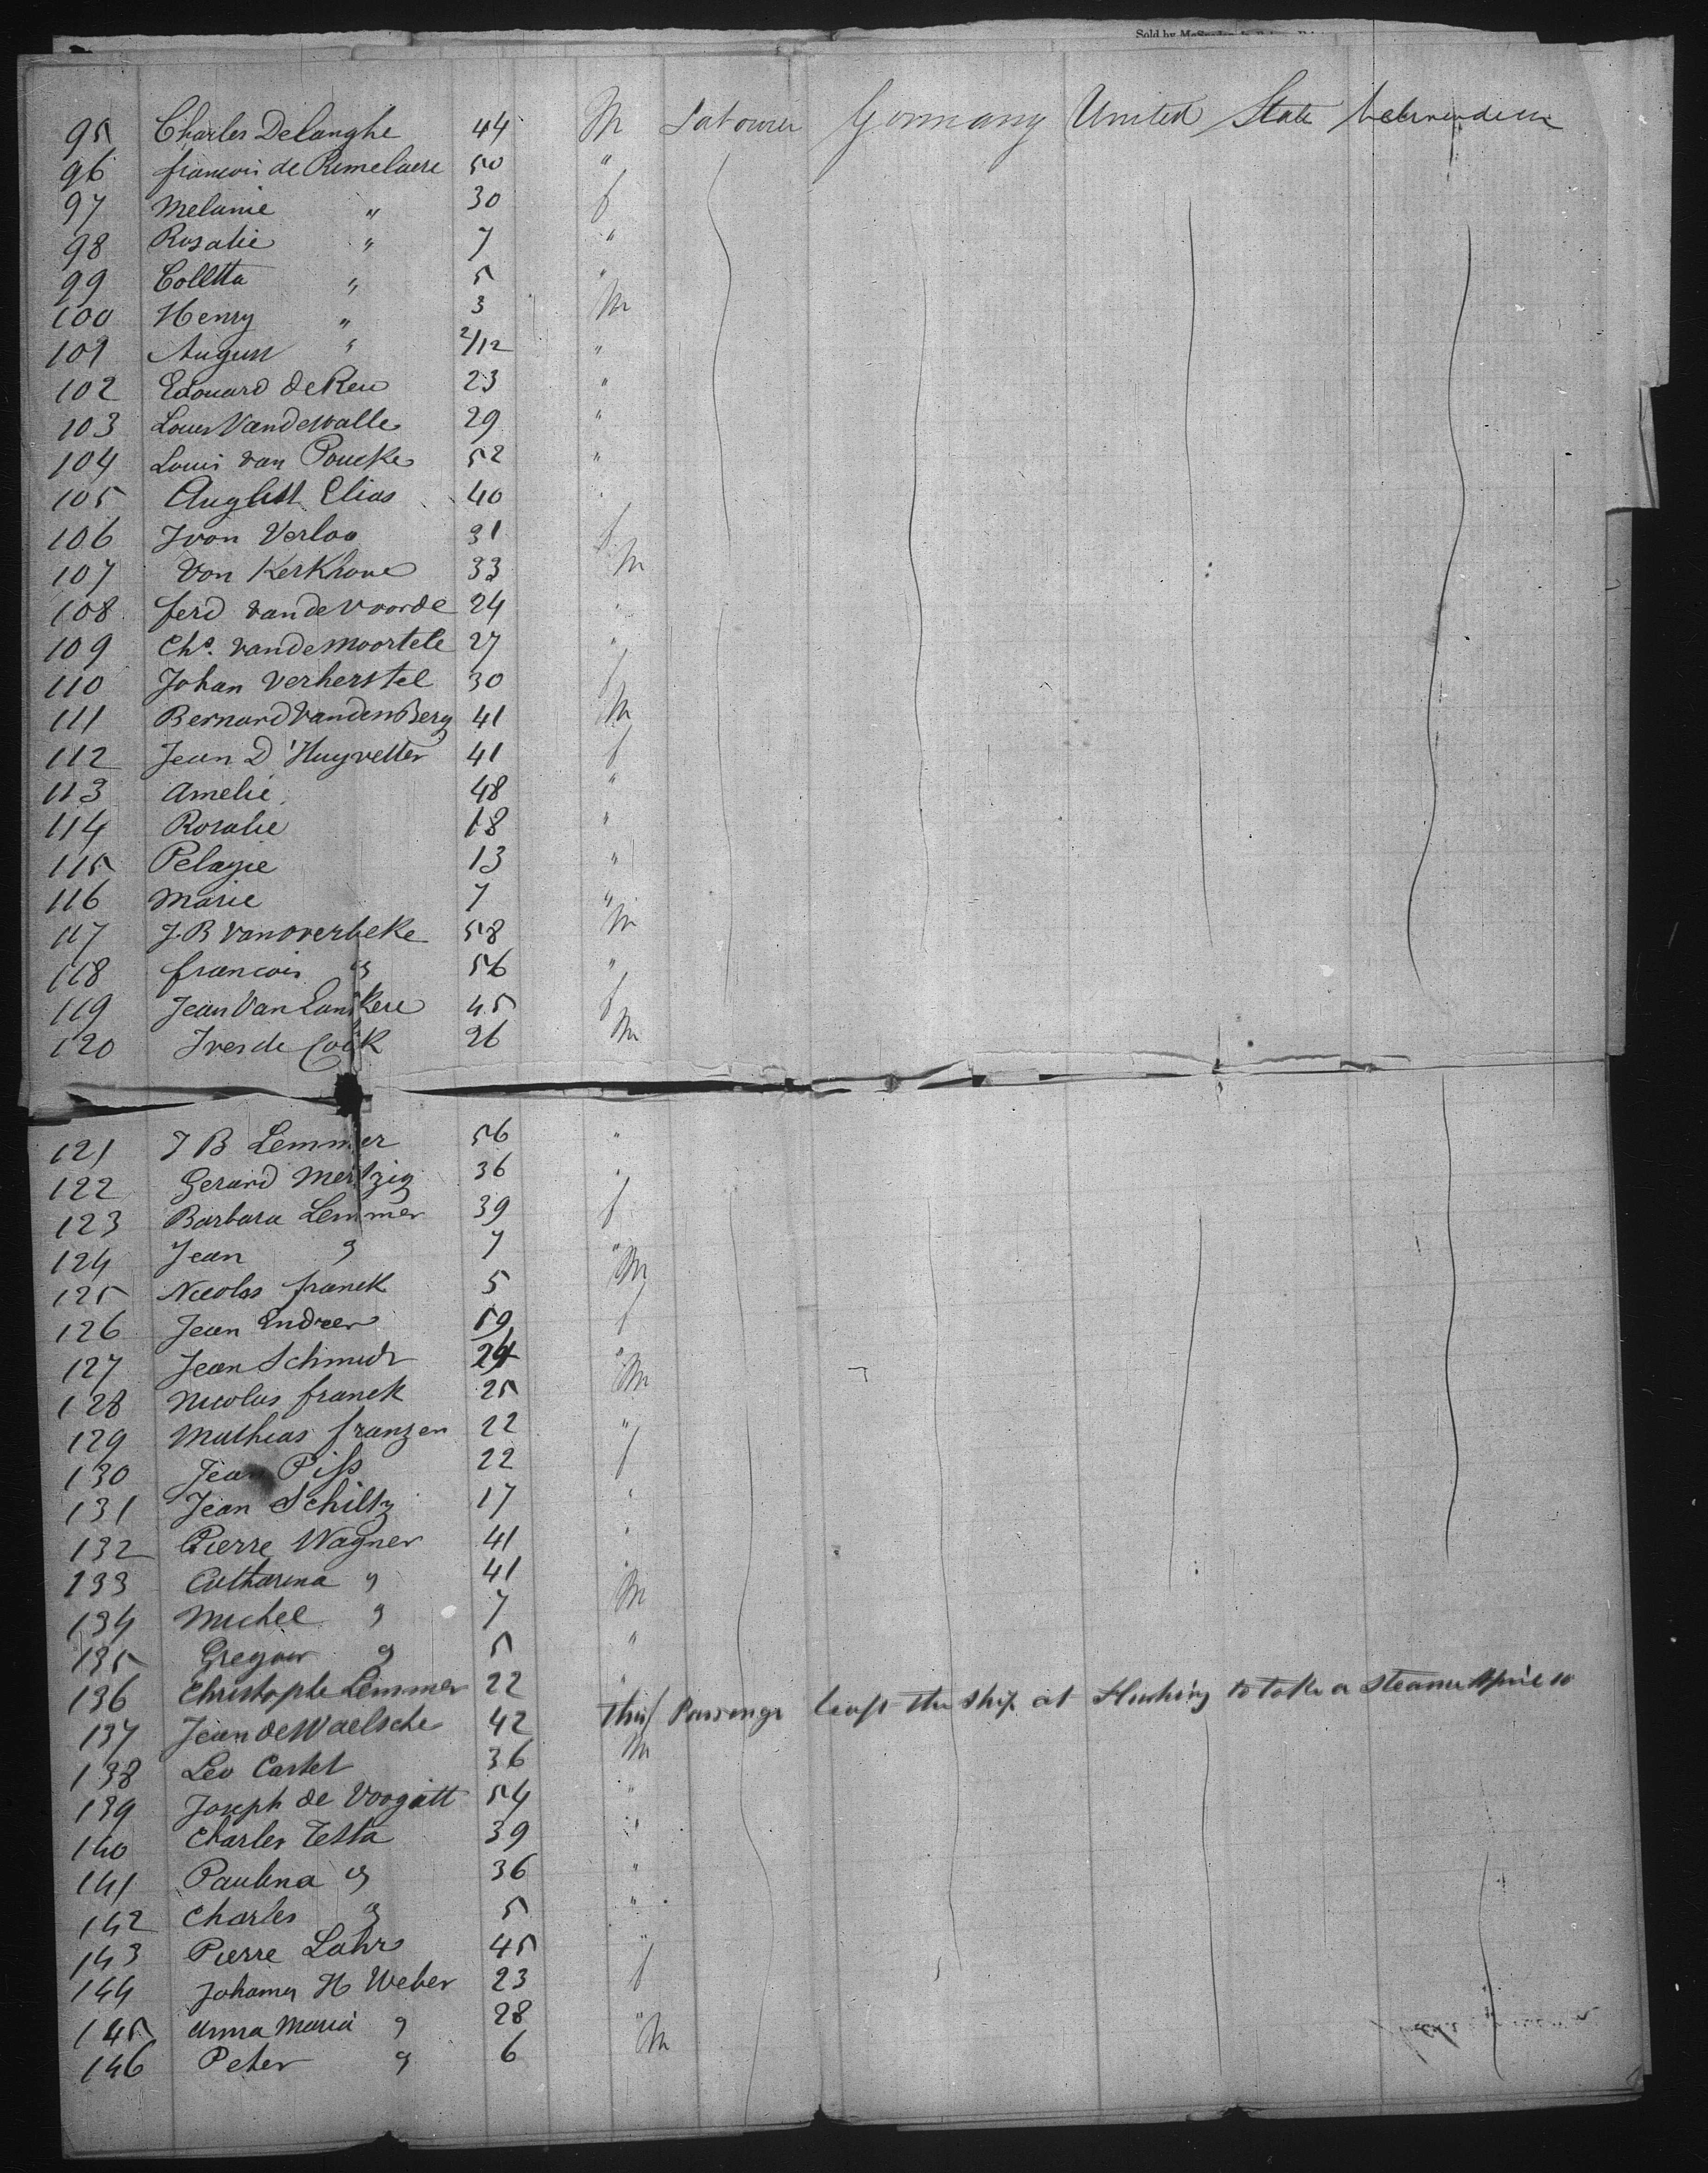 Sold by
95 Charles Delanghe 44 M Labourer Germany United State
96 francois de Rimelaere 50 "
97 Melanie " 30 f
98 Rosalie " 7 "
99 Colletta " 5 "
100 Henry " 3 M
101 August " 2/12 "
102 Edouard de Reu 23 "
103 Louis Vandewalle 29 "
104 Louis van Poucke 52 "
105 August Elias 40 "
106 Ivon Verloo 31 f
107 Von Kerkhove 33 M
108 ferd vandevoorde 24 "
109 Chs. vandemoortele 27 "
110 Johan Verherstel 30 f
111 Bernard VandenBerg 41 M
112 Jean D'Huyvetter 41 f
113 Amelie 48 "
114 Rosalie 18 "
115 Pelagie 13 "
116 Marie 7 "
117 J.B vanoverbeke 58 M
118 francois " 56 "
119 Jean Van Lankere 45 f
120 Ives de Cook 26 M
121 J B Lemmer 56 "
122 Gerard Mertzig 36 "
123 Barbara Lemmer 39 f
124 Jean " 7 "
125 Nicolas franck 5 M
126 Jean Endrer 19 f
127 Jean Schmidt 24 "
128 Nicolas franck 25 M
129 Mathias franzen 22 "
130 Jean Piss 22 f
131 Jean Schiltz 17 "
132 Pierre Wagner 41 "
133 Catharina " 41 "
134 Michel " 7 M
135 Gregoir " 5 "
136 Christophe Lemmer 22 "
137 Jean deWaelsche 42 this Passenger left the ship at Flushing to take a steamer April 10
138 Leo Castel 36 M
139 Joseph de Voogatt 54 "
140 Charles Testa 39 "
141 Paulina " 36 "
142 Charles " 5 "
143 Pierre Lahr 45 "
144 Johanna H Weber 23 f
145 Anna Maria " 28 "
146 Peter " 6 M